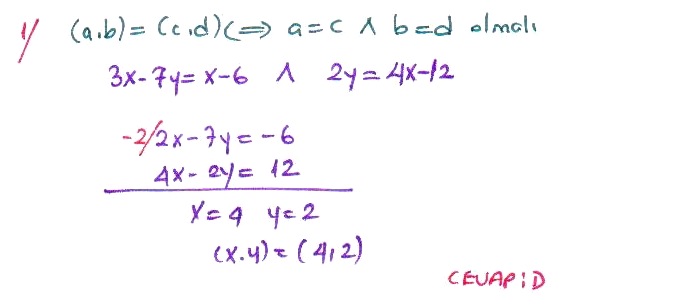 1/ (a,b) = (c,d) <=> a=c ∧ b=d olmalı
3x-7y=x-6 ∧ 2y=4x-12
-2/2x-7y=-6
4x-2y=12
x=4 y=2
(x.y)=(4,2)
CEVAP:D